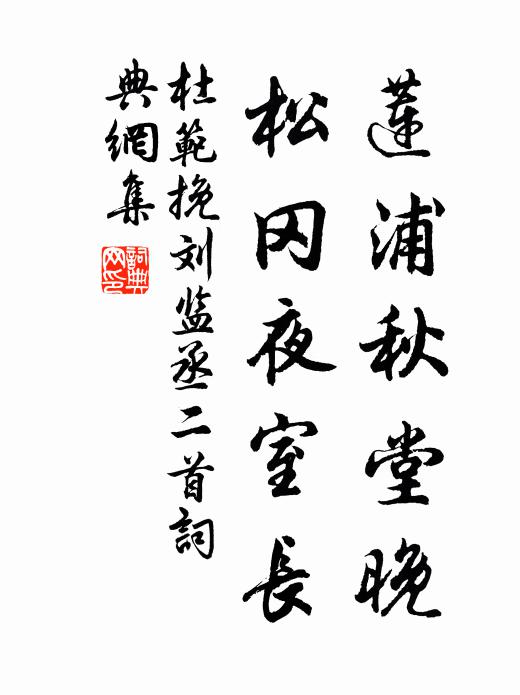 蓮浦秋堂晚
松冈夜室長
杜範挽刘监丞二首詞
典網集
詞典网印